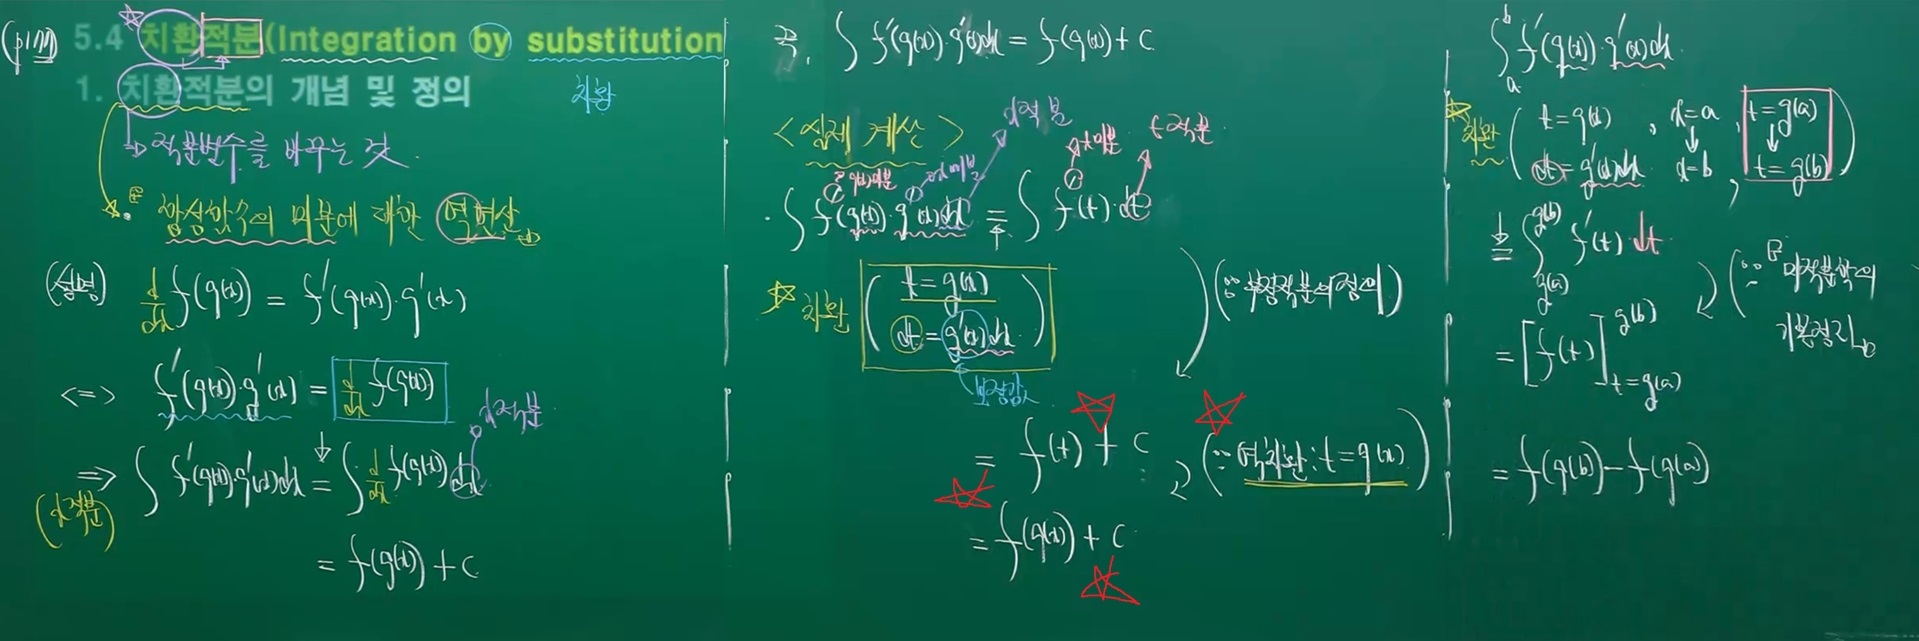 (p177) 5.4 치환적분(Integration by substitution
1. 치환적분의 개념 및 정의
치환
→ 적분변수를 바꾸는 것.
합성함수의 미분에 대한 역연산
(설명) d/dx f(g(x)) = f'(g(x))·g'(x)
<=> f'(g(x))·g'(x) = d/dx f(g(x))
x적분
=> ∫ f'(g(x))g'(x)dx = ∫ d/dx f(g(x)) dx
(x적분)
= f(g(x)) + C
즉, ∫ f'(g(x))·g'(x)dx = f(g(x)) + C
<실제 계산>
x적분
t미분
t적분
① g(x)미분
① x미분
①
· ∫ f'(g(x))·g'(x)dx = ∫ f'(t)·dt
치환 ( t = g(x)
dt = g'(x)dx )
보정값
(∵ 부정적분의 정의)
= f(t) + C
(∵ 역치환: t = g(x))
= f(g(x)) + C
∫_a^b f'(g(x))·g'(x)dx
치환 ( t = g(x) , x = a , t = g(a)
↓ ↓
dt = g'(x)dx x = b , t = g(b) )
= ∫_{g(a)}^{g(b)} f'(t) dt
(∵ 미적분학의
기본정리)
= [f(t)]_{t=g(a)}^{g(b)}
= f(g(b)) − f(g(a))